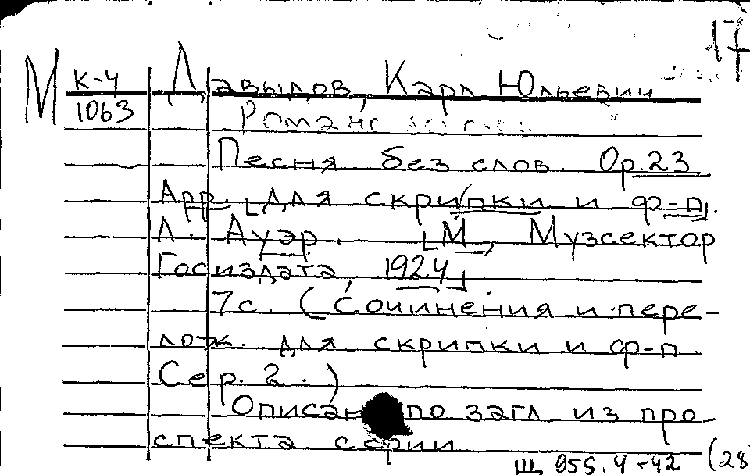 17
М К-4 Давыдов, Карл Юльевич
1063 Романс
Песня без слов. Op.23
Арр. [для скрипки и ф-п].
Л. Ауэр. [М., Музсектор
Госиздата, 1924]
7с. (Сочинения и пере-
лож. для скрипки и ф-п
Сер. 2.)
Описано по загл. из про
спекта серии
Щ 955.4-42 (28